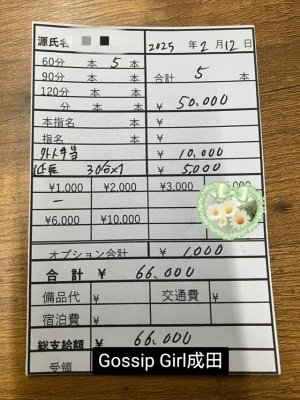 源氏名
2025 年 2 月 12 日
60分 本 5 本
90分 本 本 合計 5 本
120分 本 本
分 本 本 ¥ 50.000
本指名 本 ¥
指名 本 ¥
¥ 10.000
延長 30分×1 ¥ 5000
¥1,000 ¥2,000 ¥3,000
一
¥6,000 ¥10,000
オプション合計 ¥ 1,000
合 計 ¥ 66.000
備品代 ¥ 交通費 ¥
宿泊費 ¥
総支給額 ¥ 66.000
受領
Gossip Girl成田